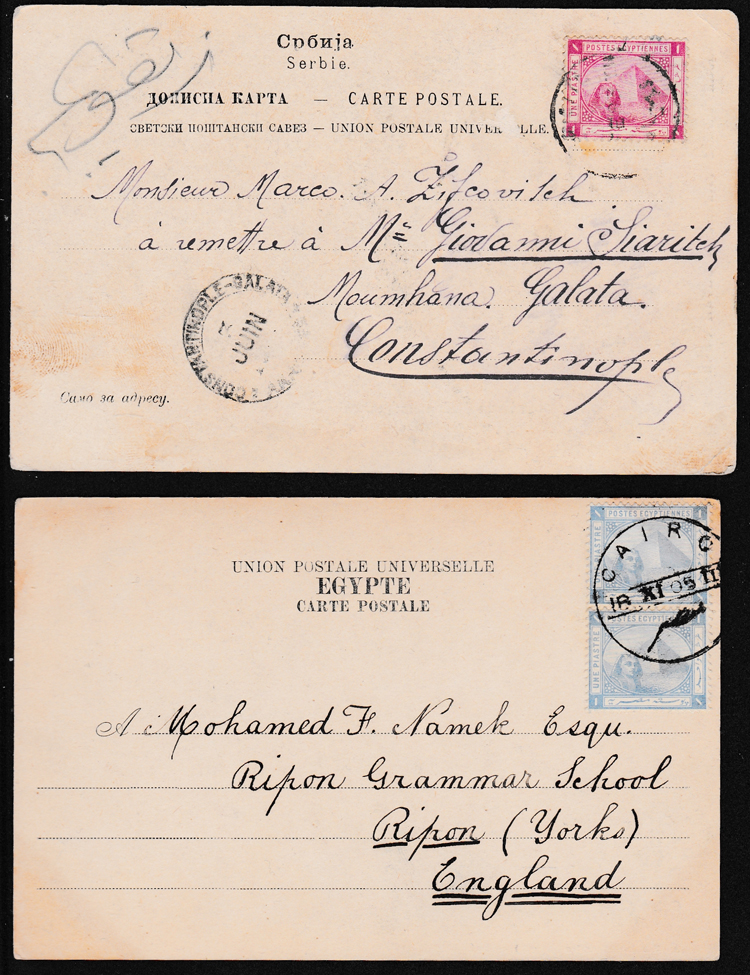 Србија
Serbie.
ДОПИСНА КАРТА — CARTE POSTALE.
СВЕТСКИ ПОШТАНСКИ САВЕЗ — UNION POSTALE UNIVE
POSTES EGYPTIENNES
1
UNE PIASTRE
Monsieur Marco. A. Zifcovitch
à remettre à Mr Giovanni Siaritch
Moumhana. Galata.
Constantinople
CONSTANTINOPLE-GALATA
JUIN
Само за адресу.
UNION POSTALE UNIVERSELLE
EGYPTE
CARTE POSTALE
POSTES EGYPTIENNES
1
UNE PIASTRE
CAIRO
18 XI 05 11
POSTES EGYPTIENNES
1
UNE PIASTRE
A Mohamed F. Namek Esqu.
Ripon Grammar School
Ripon (Yorks)
England